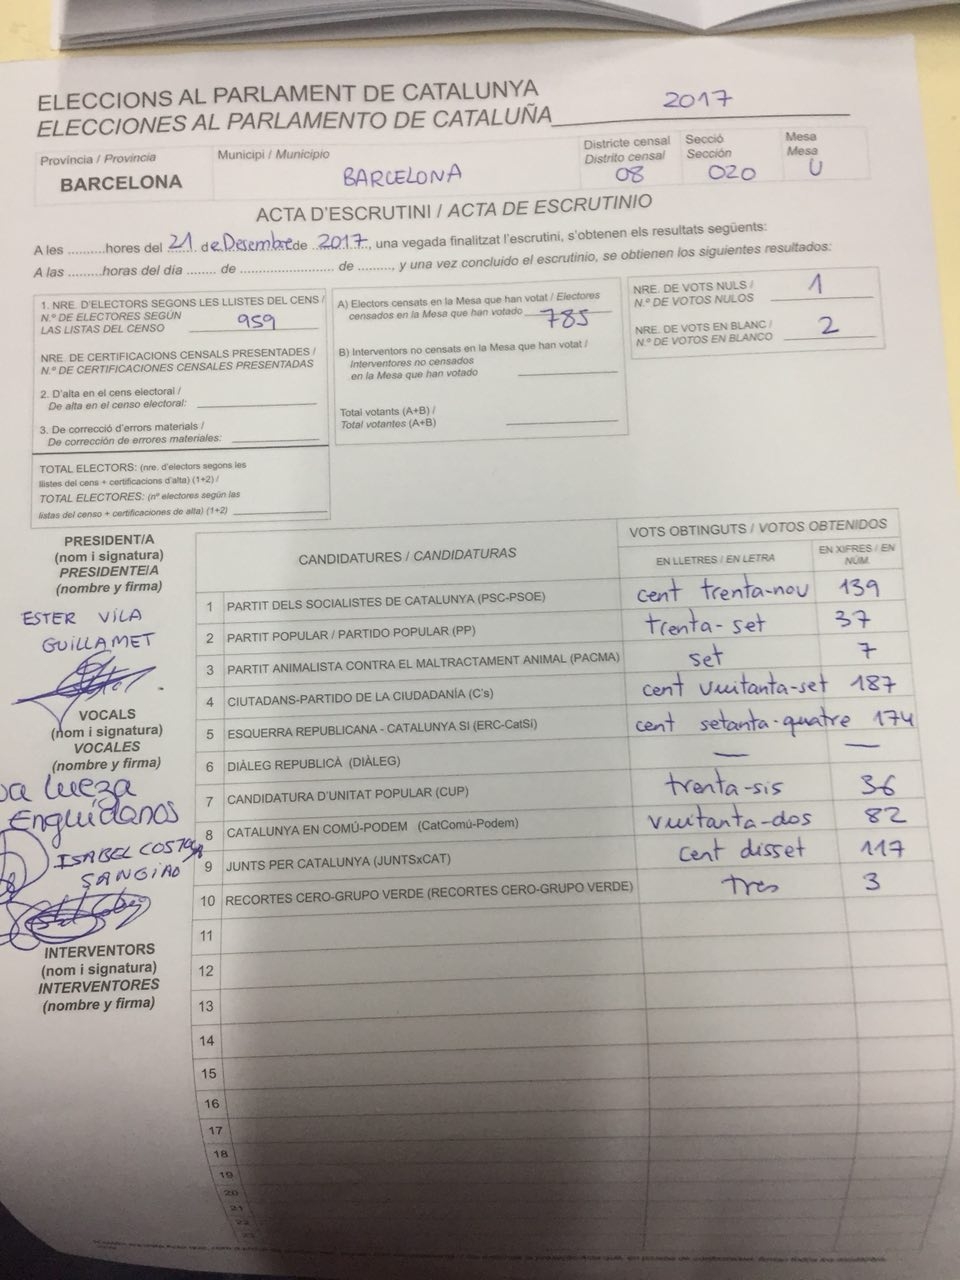 ELECCIONS AL PARLAMENT DE CATALUNYA
ELECCIONES AL PARLAMENTO DE CATALUÑA 2017
Província / Provincia
BARCELONA
Municipi / Municipio
BARCELONA
Districte censal
Distrito censal
08
Secció
Sección
020
Mesa
Mesa
U
ACTA D'ESCRUTINI / ACTA DE ESCRUTINIO
A les ..........hores del 21 de Desembre de 2017, una vegada finalitzat l'escrutini, s'obtenen els resultats següents:
A las ..........horas del día ........ de .......................... de .........., y una vez concluido el escrutinio, se obtienen los siguientes resultados:
1. NRE. D'ELECTORS SEGONS LES LLISTES DEL CENS /
N.º DE ELECTORES SEGÚN
LAS LISTAS DEL CENSO 959
NRE. DE CERTIFICACIONS CENSALS PRESENTADES /
N.º DE CERTIFICACIONES CENSALES PRESENTADAS
2. D'alta en el cens electoral /
De alta en el censo electoral:
3. De correcció d'errors materials /
De corrección de errores materiales:
TOTAL ELECTORS: (nre. d'electors segons les
llistes del cens + certificacions d'alta) (1+2) /
TOTAL ELECTORES: (nº electores según las
listas del censo + certificaciones de alta) (1+2)
A) Electors censats en la Mesa que han votat / Electores
censados en la Mesa que han votado 785
B) Interventors no censats en la Mesa que han votat /
Interventores no censados
en la Mesa que han votado
Total votants (A+B) /
Total votantes (A+B)
NRE. DE VOTS NULS /
N.º DE VOTOS NULOS 1
NRE. DE VOTS EN BLANC /
N.º DE VOTOS EN BLANCO 2
PRESIDENT/A
(nom i signatura)
PRESIDENTE/A
(nombre y firma)
ESTER VILA
GUILLAMET
VOCALS
(nom i signatura)
VOCALES
(nombre y firma)
Lueza
Enguídanos
ISABEL COSTOYA
SANGIAO
INTERVENTORS
(nom i signatura)
INTERVENTORES
(nombre y firma)
CANDIDATURES / CANDIDATURAS
VOTS OBTINGUTS / VOTOS OBTENIDOS
EN LLETRES / EN LETRA
EN XIFRES / EN
NÚM.
1 PARTIT DELS SOCIALISTES DE CATALUNYA (PSC-PSOE) cent trenta-nou 139
2 PARTIT POPULAR / PARTIDO POPULAR (PP) trenta-set 37
3 PARTIT ANIMALISTA CONTRA EL MALTRACTAMENT ANIMAL (PACMA) set 7
4 CIUTADANS-PARTIDO DE LA CIUDADANÍA (C's) cent vuitanta-set 187
5 ESQUERRA REPUBLICANA - CATALUNYA SI (ERC-CatSí) cent setanta-quatre 174
6 DIÀLEG REPUBLICÀ (DIÀLEG) — —
7 CANDIDATURA D'UNITAT POPULAR (CUP) trenta-sis 36
8 CATALUNYA EN COMÚ-PODEM (CatComú-Podem) vuitanta-dos 82
9 JUNTS PER CATALUNYA (JUNTSxCAT) cent disset 117
10 RECORTES CERO-GRUPO VERDE (RECORTES CERO-GRUPO VERDE) tres 3
11
12
13
14
15
16
17
18
19
20
21
22
23